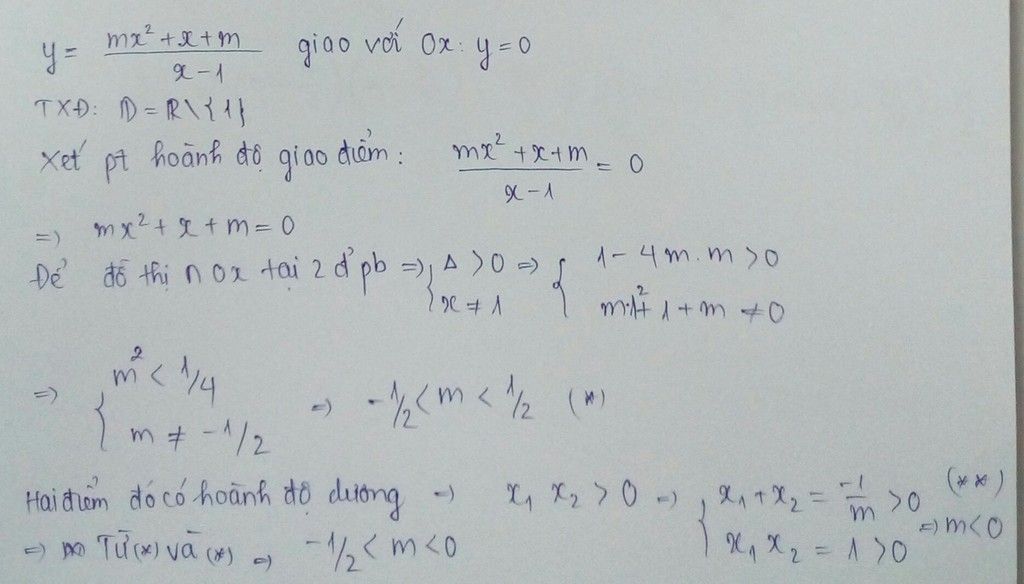 y = (mx² + x + m)/(x - 1) giao với Ox: y = 0
TXĐ: D = R\{1}
Xét pt hoành độ giao điểm: (mx² + x + m)/(x - 1) = 0
=> mx² + x + m = 0
Để đồ thị ∩ Ox tại 2 đ' pb => { Δ > 0 => { 1 - 4m.m > 0
x ≠ 1 m.1² + 1 + m ≠ 0
=> { m² < 1/4 => -1/2 < m < 1/2 (*)
m ≠ -1/2
Hai điểm đó có hoành độ dương => x₁ x₂ > 0 => { x₁ + x₂ = -1/m > 0 (**)
x₁ x₂ = 1 > 0 => m < 0
=> Từ (*) và (*) => -1/2 < m < 0